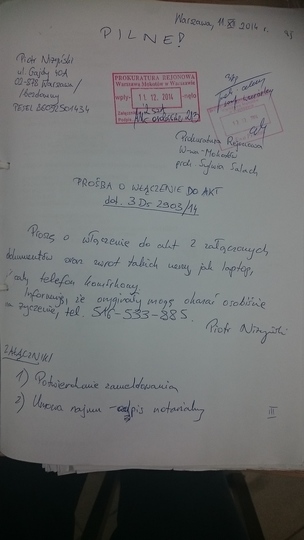 Warszawa, 11 XII 2014 r.
PILNE!
Piotr Niżyński
ul. Gajdy 40A
02-878 Warszawa /
bezdomny
PESEL
PROKURATURA REJONOWA
Warszawa Mokotów w Warszawie
wpły- 11. 12. 2014 -nęło
Prokuratura Rejonowa
W-wa-Mokotów
prok. Sylwia
PROŚBA O WŁĄCZENIE DO AKT
dot. 3 Ds 2903/14
Proszę o włączenie do akt 2 załączonych
dokumentów oraz zwrot takich rzeczy jak laptop,
telefon komórkowy.
Informuję, że oryginały mogę okazać osobiście
na życzenie, tel. 514-533-885.
Piotr Niżyński
ZAŁĄCZNIKI
1) Potwierdzenie zameldowania
2) Umowa najmu - odpis notarialny
III